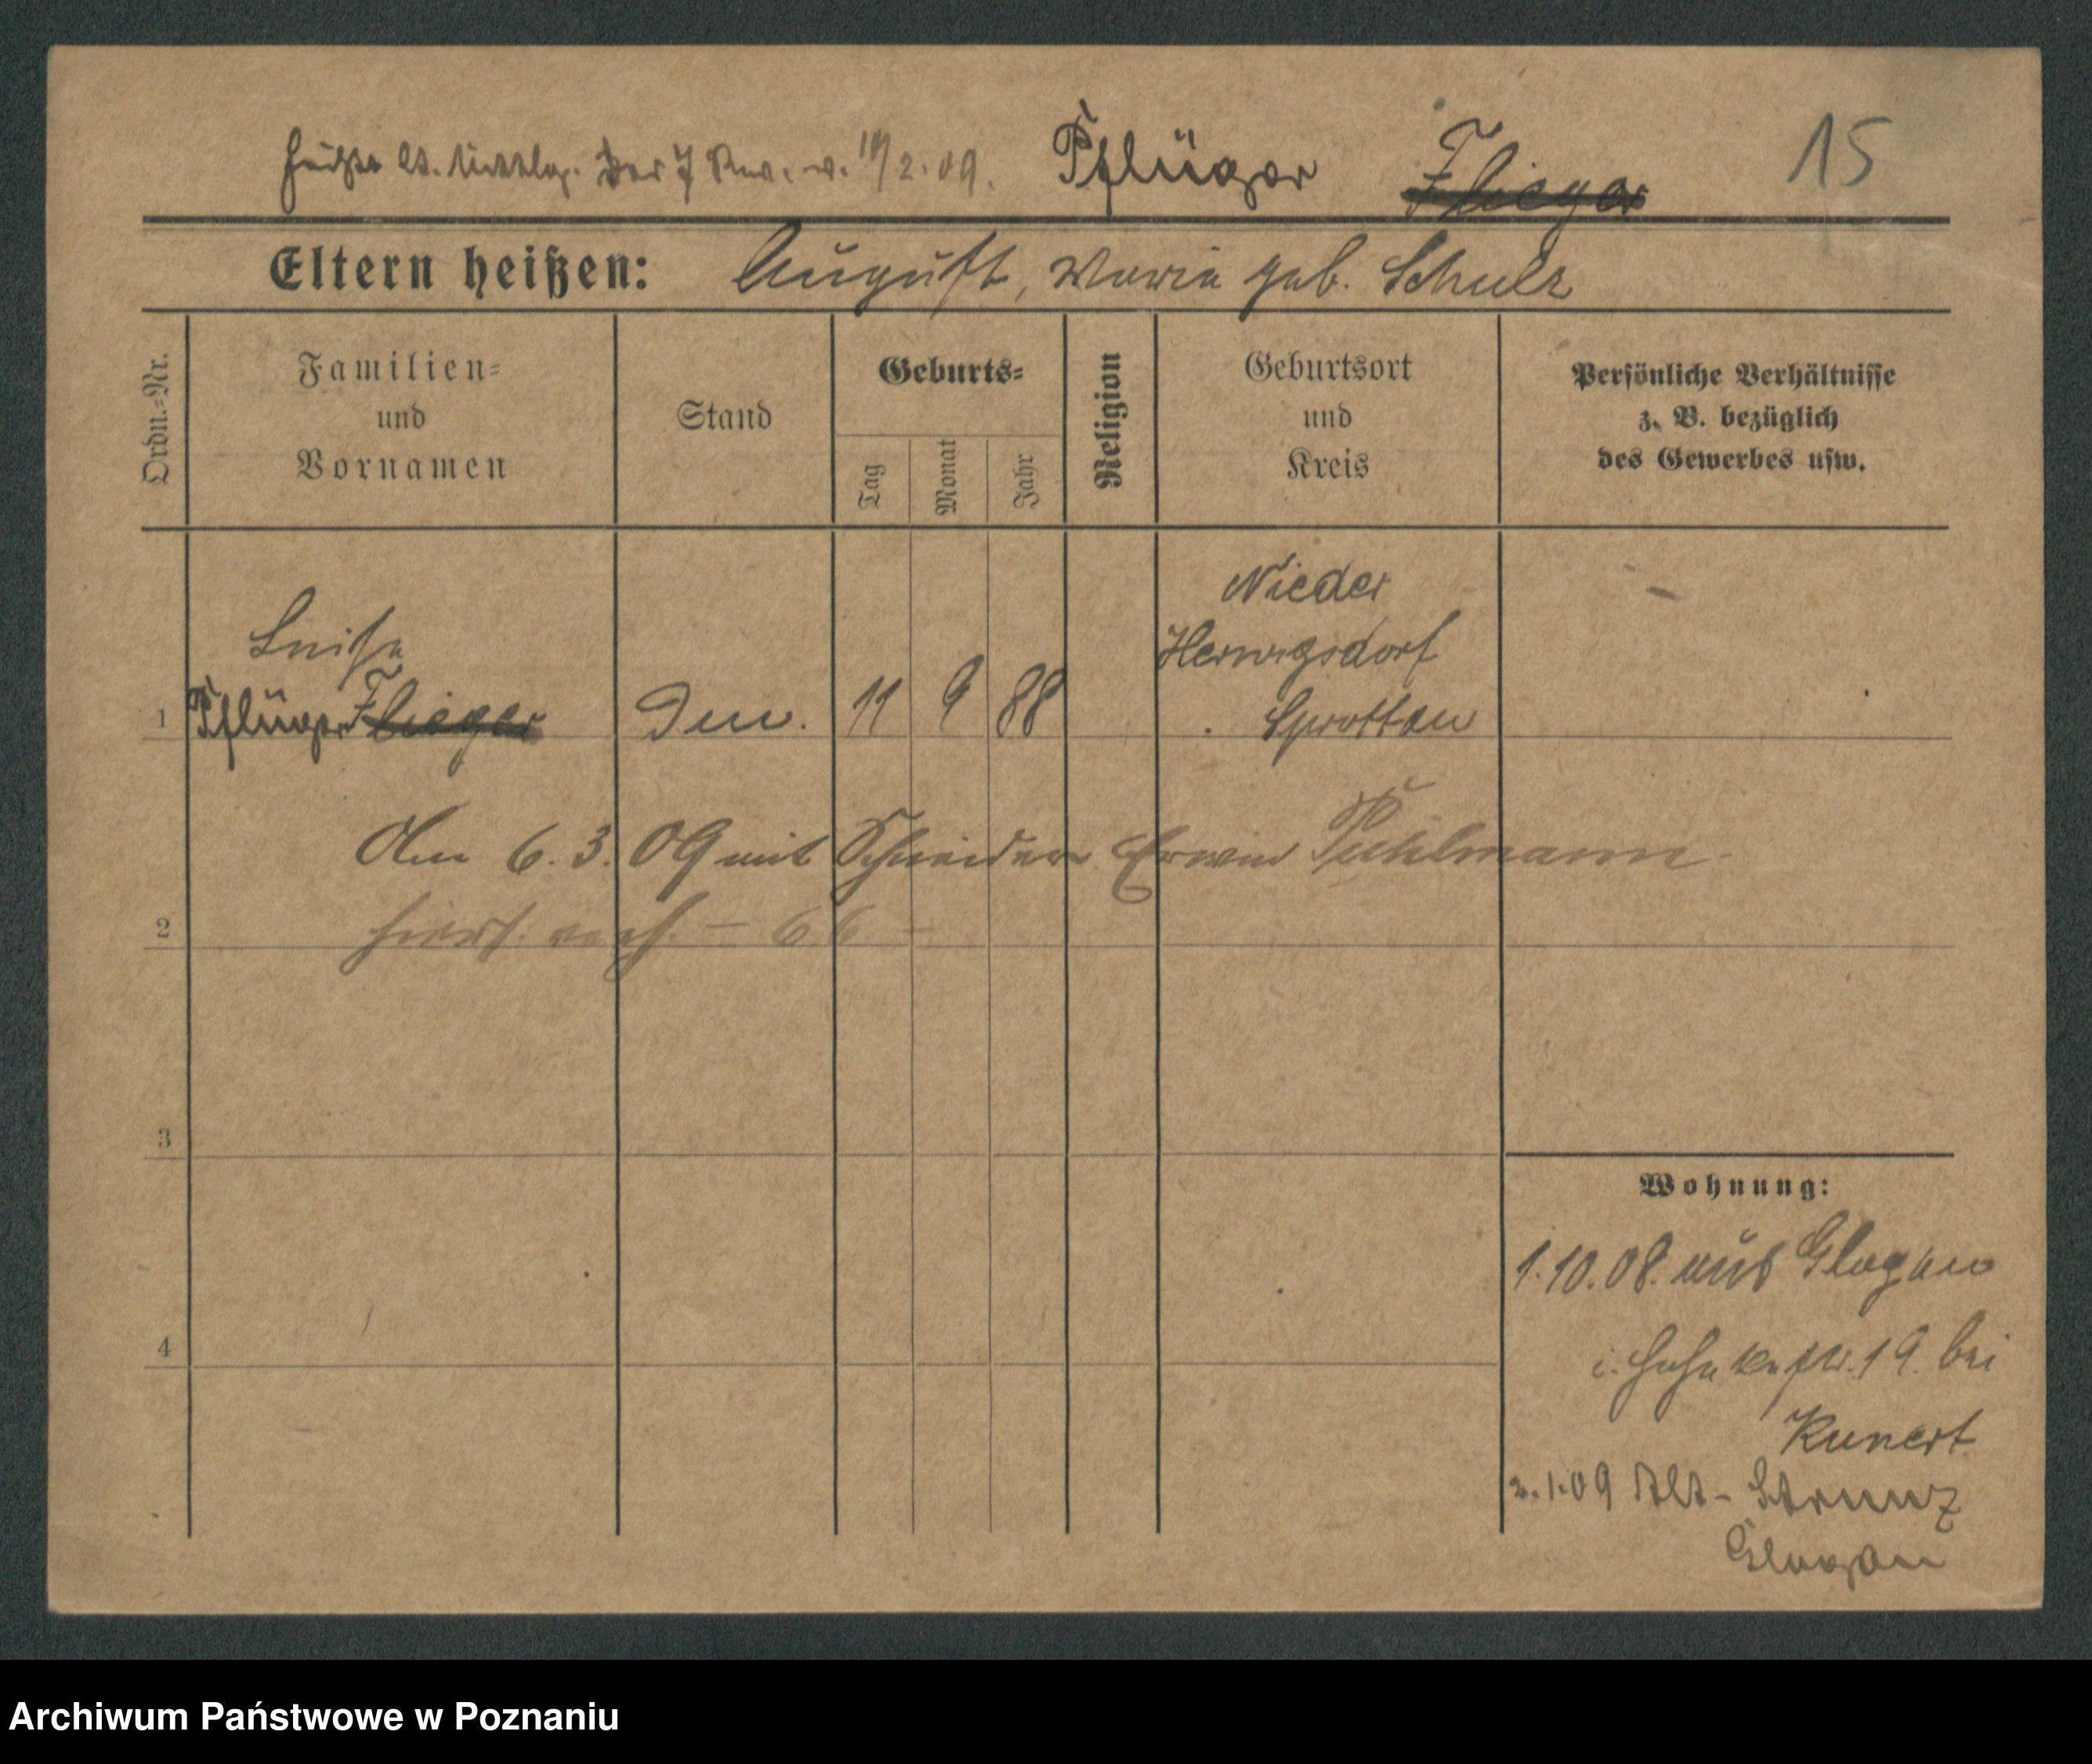 heißt lt. Mittlg. der 7 Rev. v. 19/2.09. Pflüger Flieger 15
Eltern heißen: August, Maria geb. Schulz
Ordn.-Nr.
Familien- und Vornamen
Stand
Geburts-
Tag
Monat
Jahr
Religion
Geburtsort und Kreis
Persönliche Verhältnisse z. B. bezüglich des Gewerbes usw.
Luise
1 Pflüger Flieger 11 9 88
Nieder
Herwigsdorf
Sprottau
Am 6.3.09 mit Schneider Erwin Puhlmann
2 hiers. verh. – 66 –
3
4
Wohnung:
1.10.08. aus Glogau
19. bei
Kunert
2.1.09 Alt-Strunz
Glogau
Archiwum Państwowe w Poznaniu